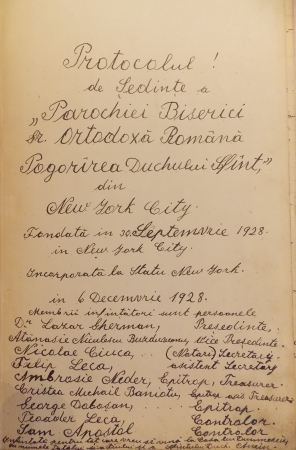 Protocolul!
de Ședințe a
„Parochiei Biserici
Gr. Ortodoxă Română
Pogorîrea Duchului Sfînt,"
din
New York City.
Fondata in 30 Septemvrie 1928.
in New York City.
Incorporata la Statu New York.
in 6 Decemvrie 1928.
Membrii infintători sunt persoanele
Dr Lazar Gherman, Presedinte,
Atanasie Niculescu Vice Presedinte.
Nicolae Ciuca, (Notar) Secretary
Filip Leca, asistent Secretary
Ambrosie Neder, Epitrop, Treasurer.
Cristea Michail Epitrop Treasurer
George Epitrop.
Leca, Controlor.
Sam Apostol Controlor